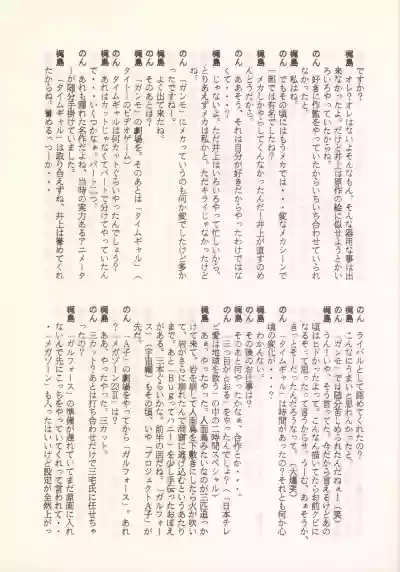 ですか?
梶島 オレ? オレはないよそんなもん。そんな器用な事は出
来なかったよ。だけど井上は原作の絵に似せようとかい
ろいろやっていたからね。
のん 好きに作監をやっていたからいちいち合わせていられ
なかった。
梶島 私はね。
のん でもその頃にはもうメカでは・・・変なメカシーンで
一部では有名でしたね?
梶島 メカしかやらしてくんなかったんだ!井上が直すのめ
んどうだから。
のん ああそう。それは自分が好きだからやったわけではな
くて・・・?
梶島 じゃないよ。ただ井上はいろいろやって忙しいから、
とりあえずメカは私かと。ただキライじゃなかったけど
ね。
のん 「ガンモ」にメカっていうのも何か変でしたけど多か
ったですねー。
梶島 よく出て来たね。
のん そのあとは?
梶島 「ガンモ」の劇場を。そのあとは「タイムギャル」(
タイトーのビデオゲーム)
のん タイムギャルは何カットぐらいやったんでしょう?
梶島 あれはカットじゃなくてパートで分けてやっていたん
で・・・いくつかなぁ。パート二つ。
のん あれも隠れた名作だよね。当時の実力あるアニメータ
ーが随分手掛けていた・・・。
梶島 「タイムギャル」は取り合えずね、井上は誉めてくれ
たからね。誉めるっつーか・・・・
のん ライバルとして認めてくれたの?
梶島 こんなにうまいとは思わんかったと。
のん 「ガンモ」では随分苦しめられたんだねぇー(笑)
梶島 うんー!いや、そう言ってた。今だから言えるけどあの
頃はヒドかったよって。こんなん描いてたらお前クビに
なるぞって思ったって言うからサ、うーむ。あぁそうか、
きっとそーとーたんだろうなって。(大爆笑)
のん 「タイムギャル」は時間があったの?それとも何か心
境の変化が・・・?
梶島 わかんない。
のん その後のお仕事は?
梶島 そのあと何やったかなぁ、合作とか・・・。
のん 「三つ目がとおる」をやったんでしょ?(「日本テレ
ビ愛は地球を救う」の中の二時間スペシャル)
梶島 あぁ、やったやった。人面鳥みたいなのが三匹追っか
けて来て。岩を崩して人面鳥を下敷きにしたら火が吹い
て、岩がさーに崩れたんで洞窟に逃げ込むというあたり
まで。あと「Ｂｕｇってハニー」を少し手伝ったおぼえ
がある。三本ぐらいかな。前半の回だね。「ガルフォー
ス」(宇宙編)もその頃、いや「プロジェクトＡ子」が
先だ。
のん 「Ａ子」の劇場をやってから「ガルフォース」。あれ
?「メガゾーン23Ⅱ」は?
梶島 ああ、やったやった。三カット。
のん 三カット?あとは打ち合わせだけで三宅氏に任せちゃ
った?
梶島 「ガルフォース」の準備が遅れていてまだ原画に入れ
ないんで先にこっちをやっていてくれって言われて・・
・「メガゾーン」も入ったはいいけど設定が全然上がっ